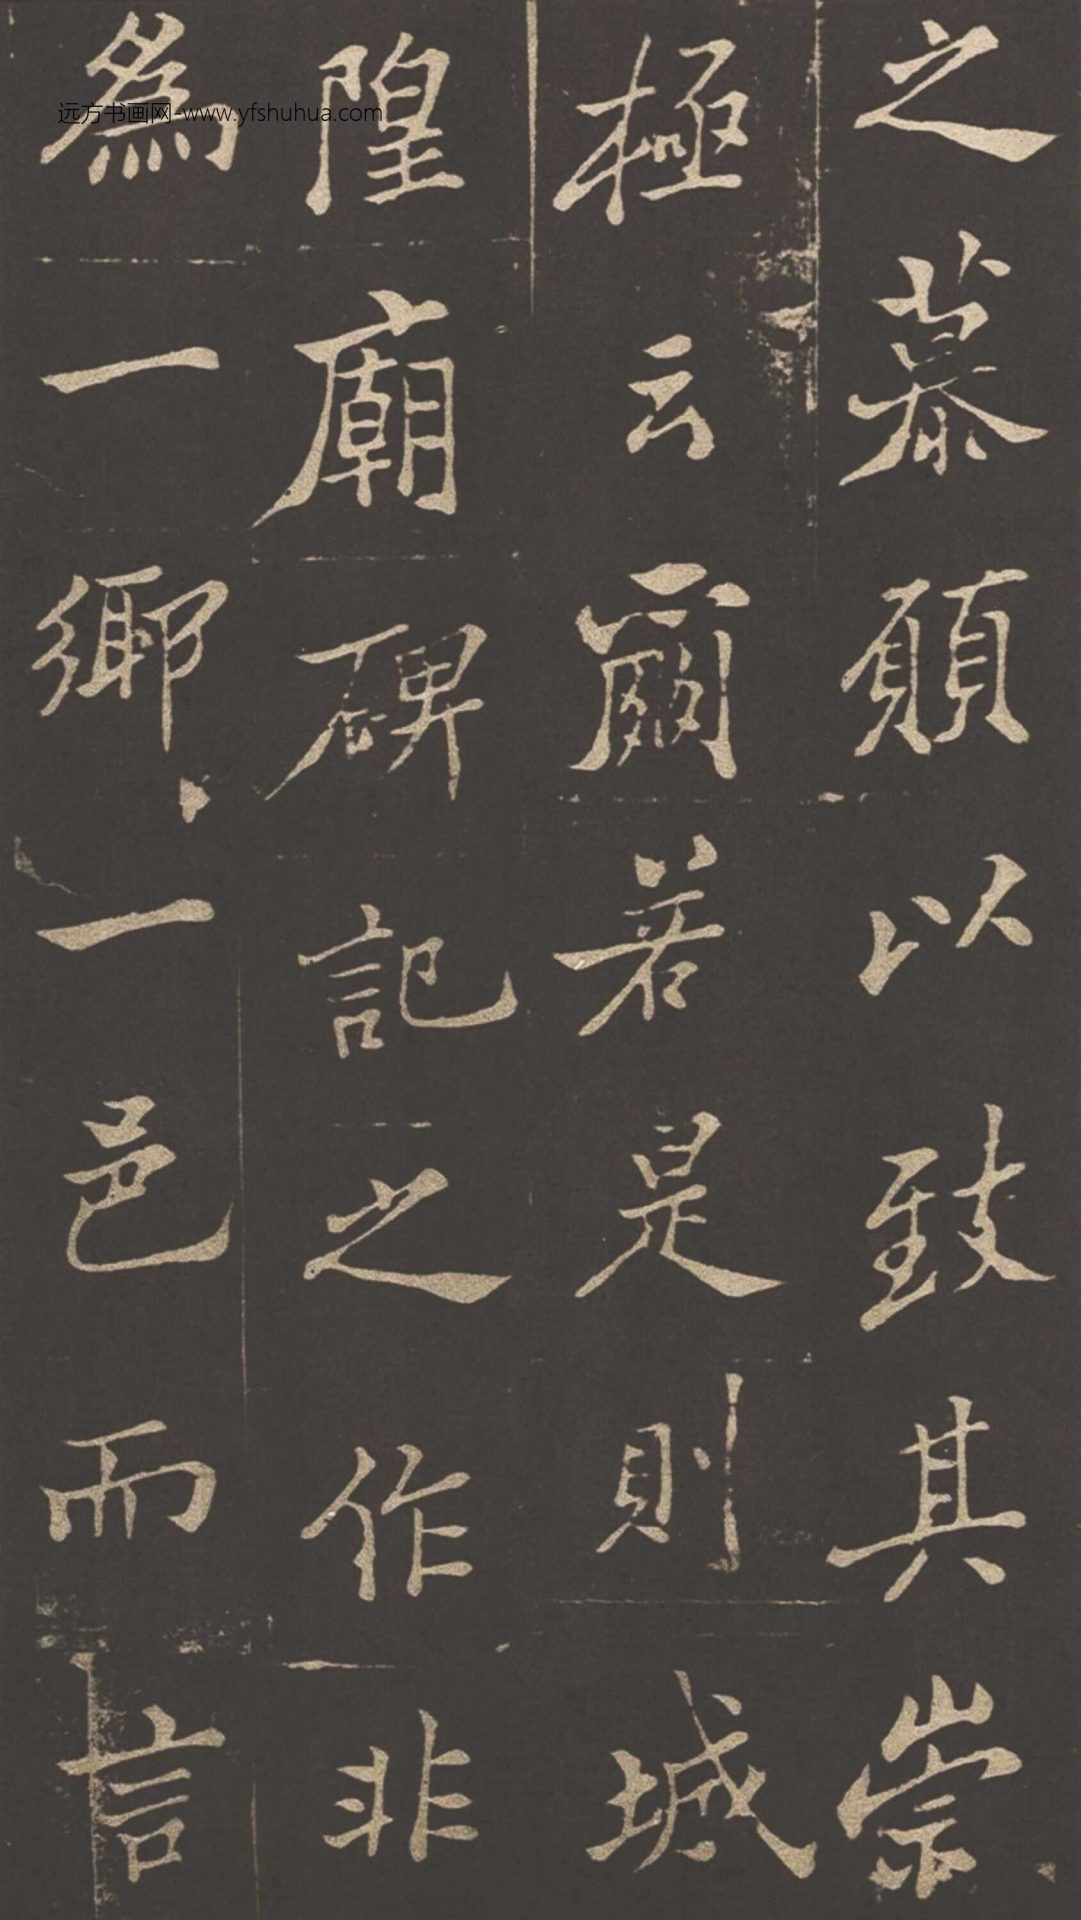 之慕願以致其崇
極云爾若是則城
隍廟碑記之作非
為一鄉一邑而言
远方书画网-www.yfshuhua.com